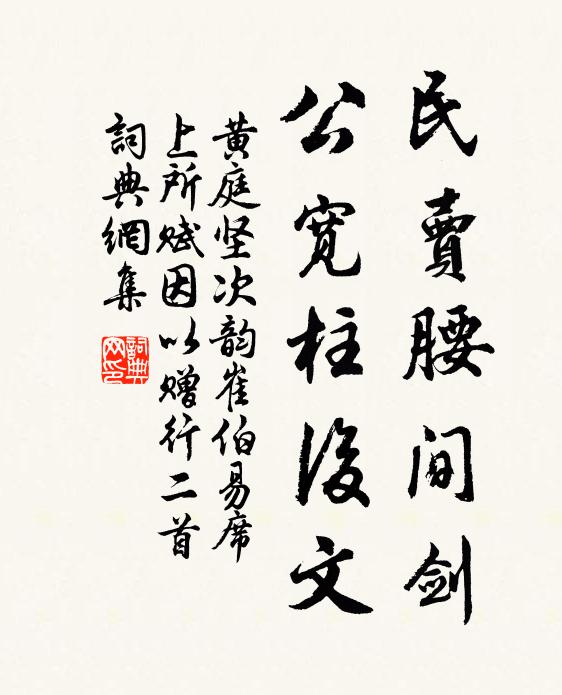 民賣腰間劍
公寬柱後文
黄庭坚次韵崔伯易席
上所赋因以赠行二首
詞典網集
詞典網印